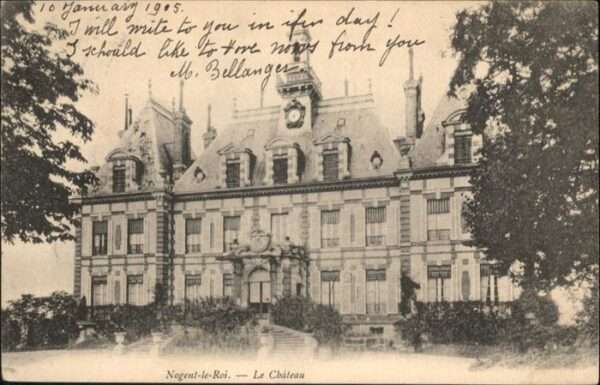 10 January 1905.
I will write to you in ifew day!
I schould like to have nows from you
M. Bellanger
Nogent-le-Roi. — Le Château